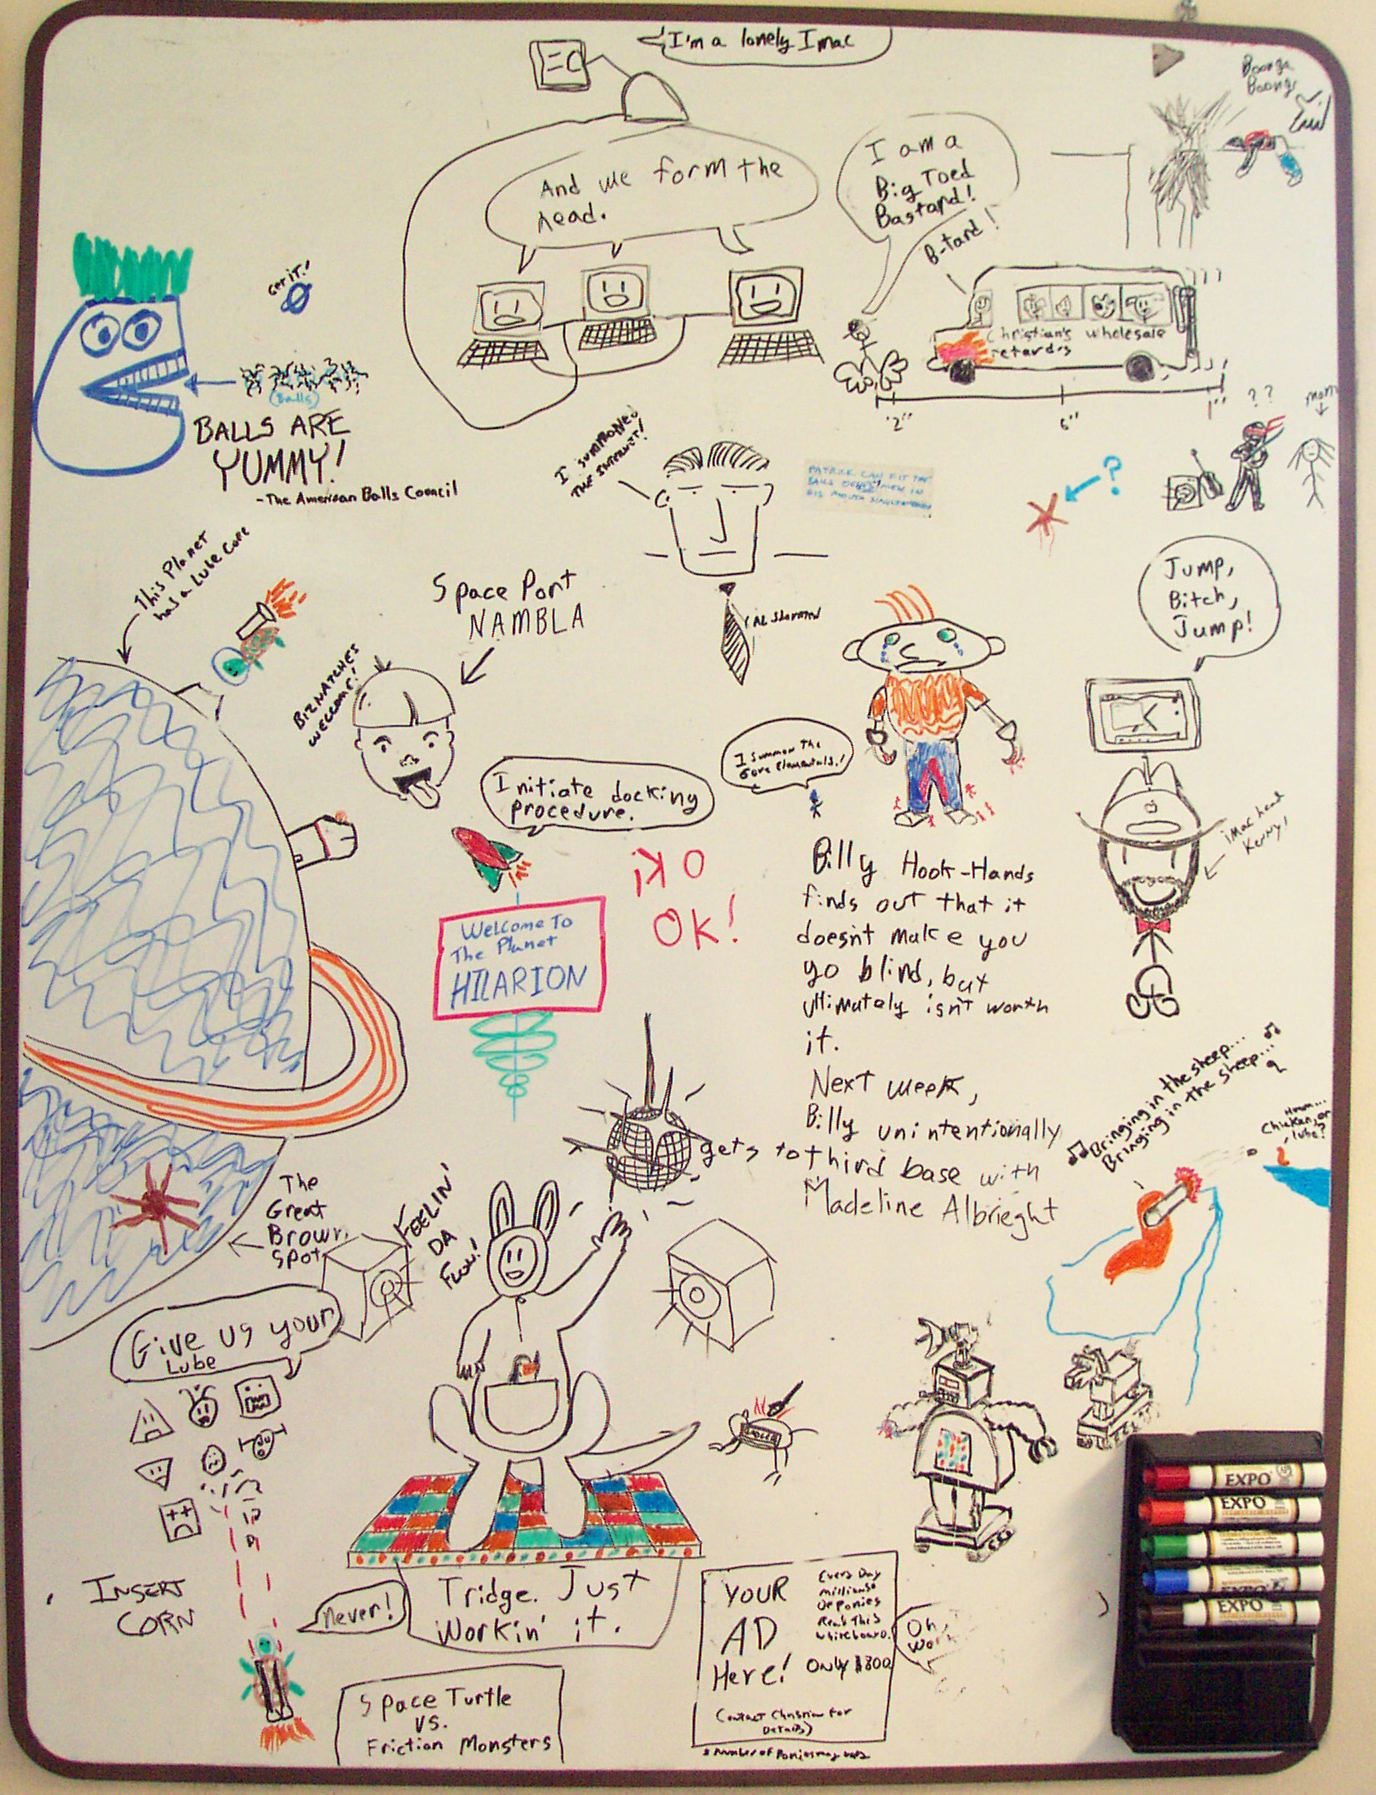 I'm a lonely Imac
And we form the
head.
I am a
Big Toed
Bastard!
B-tard!
Booga
Booga
Christian's wholesale
retards
2"
6"
1"
Get it!
Balls
BALLS ARE
YUMMY!
-The American Balls Council
I SUMMONED
THE INTERNET!
PATRICK CAN FIT THE
BALLS OF MEN IN
HIS MOUTH SIMULTANEOUSLY
?
? ?
mom
This Planet
has a Lube Core
Space Port
NAMBLA
BIZNATCHES
WELCOME!
Jump,
Bitch,
Jump!
I summon the
Gore Elementals!
Initiate docking
procedure.
OK!
OK!
Welcome To
The Planet
HILARION
iMac head
Kenny!
Billy Hook-Hands
finds out that it
doesn't make you
go blind, but
ultimately isn't worth
it.
Next week,
Billy unintentionally
gets to third base with
Madeline Albrieght
Bringing in the sheep...
Bringing in the sheep...
Hmm...
Chicken, or
lube?
The
Great
Brown
Spot
FEELIN'
DA
Funk!
Give us your
Lube
INSERT
CORN
Never!
Tridge. Just
Workin' it.
Space Turtle
vs.
Friction Monsters
YOUR
AD
Here!
Every Day
millions*
of ponies
Read This
whiteboard.
Only $800
(Contact Christian for
Details)
* Number of Ponies may vary
Oh,
EXPO
EXPO
EXPO
EXPO